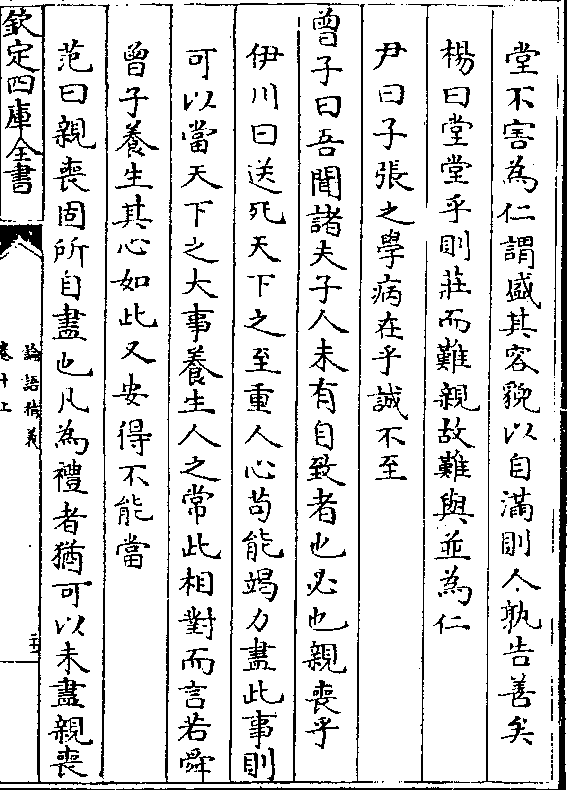 堂不害為仁謂盛其容貌以自滿則人孰告善矣
楊曰堂堂乎則莊而難親故難與並為仁
尹曰子張之學病在乎誠不至
曾子曰吾聞諸夫子人未有自致者也必也親喪乎
伊川曰送死天下之至重人心苟能竭力盡此事則
可以當天下之大事養生人之常此相對而言若舜
曾子養生其心如此又安得不能當
范曰親喪固所自盡也凡為禮者猶可以未盡親喪
欽定四庫全書
論語精義
卷十上